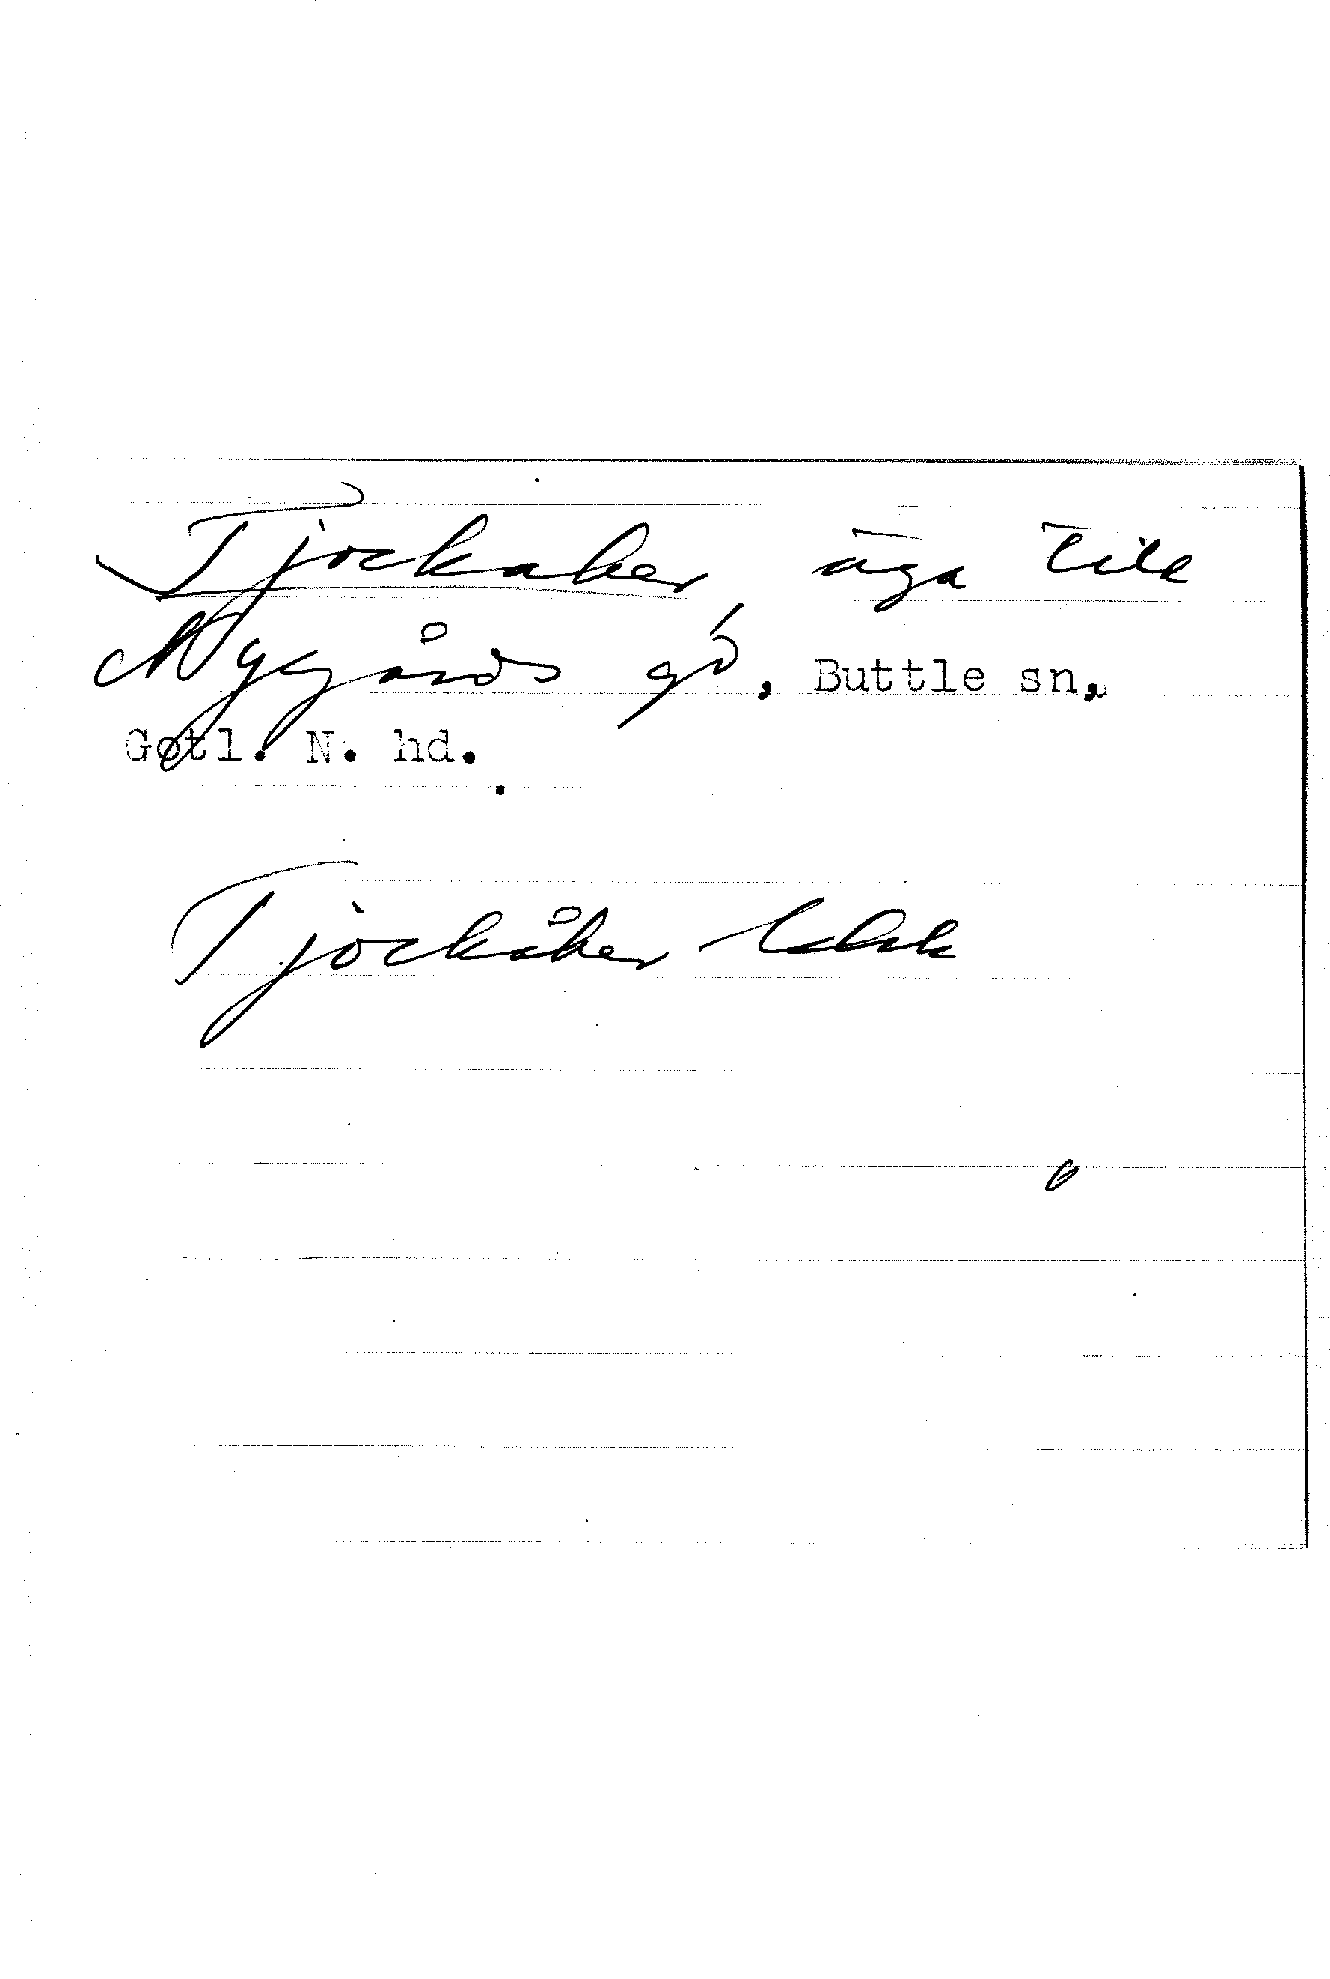 Tjockaker äga till
Nygårds gd, Buttle sn,
Gotl. N. hd.
Tjockåker